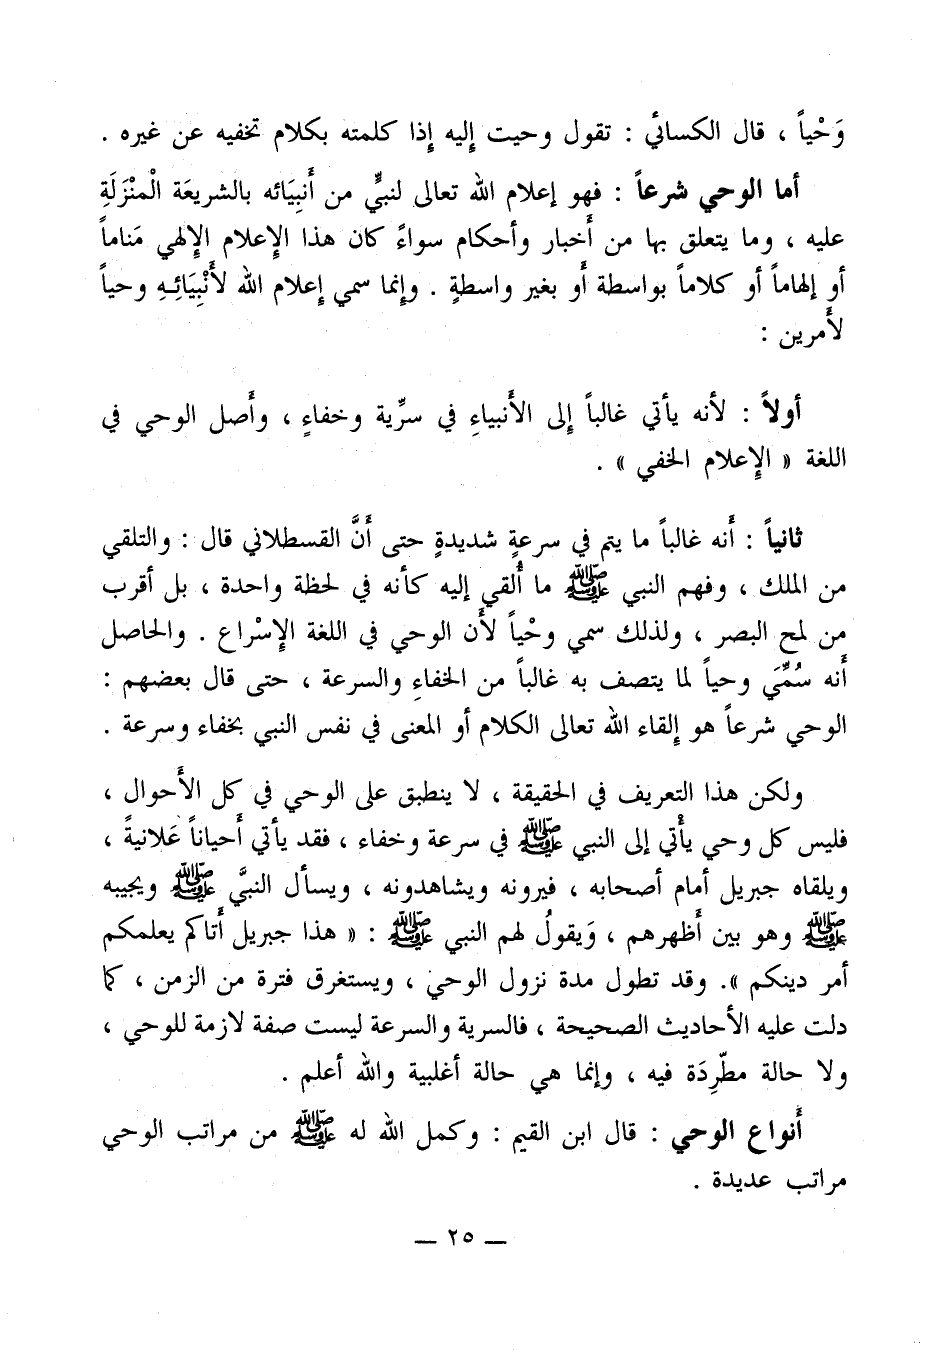 وَحْياً ، قال الكسائي : تقول وحيت إِليه إِذا كلمته بكلام تخفيه عن غيره .
أما الوحي شرعاً : فهو إعلام الله تعالى لنبيٍّ من أَنبِيَائه بالشريعَة الْمنْزَلَةِ
عليه ، وما يتعلق بها من أَخبار وأحكام سواءً كان هذا الإِعلام الإِلهي مَناماً
أو إلهاماً أو كلاماً بواسطة أَو بغير واسطةٍ . وإِنما سمي إِعلام الله لأَنْبِيَائِهِ وحياً
لأَمرين :
أولاً : لأنه يأتي غالباً إِلى الأَنبياءِ في سرِّية وخفاءٍ ، وأَصل الوحي في
اللغة « الإِعلام الخفي » .
ثانياً : أَنه غالباً ما يتم في سرعةٍ شديدةٍ حتى أَنَّ القسطلاني قال : والتلقي
من الملك ، وفهم النبي ﷺ ما أُلقي إليه كأنه في لحظة واحدة ، بل أقرب
من لمح البصر ، ولذلك سمي وحْياً لأَن الوحي في اللغة الإِسْراع . والحاصل
أَنه سُمِّيَ وحياً لما يتصف به غالباً من الخفاءِ والسرعة ، حتى قال بعضهم :
الوحي شرعاً هو إِلقاء الله تعالى الكلام أو المعنى في نفس النبي بخفاء وسرعة .
ولكن هذا التعريف في الحقيقة ، لا ينطبق على الوحي في كل الأَحوال ،
فليس كل وحي يأْتي إلى النبي ﷺ في سرعة وخفاء ، فقد يأتي أَحياناً عَلانيةً ،
ويلقاه جبريل أمام أصحابه ، فيرونه ويشاهدونه ، ويسأل النبيَّ ﷺ ويجيبه
ﷺ وهو بين أَظهرهم ، وَيقولُ لهم النبي ﷺ : « هذا جبريل أَتاكم يعلمكم
أمر دينكم ». وقد تطول مدة نزول الوحي ، ويستغرق فترة من الزمن ، كما
دلت عليه الأحاديث الصحيحة ، فالسرية والسرعة ليست صفة لازمة للوحي ،
ولا حالة مطّرِدَة فيه ، وإنما هي حالة أغلبية والله أعلم .
أَنواع الوحي : قال ابن القيم : وكمل الله له ﷺ من مراتب الوحي
مراتب عديدة .
— ٢٥ —